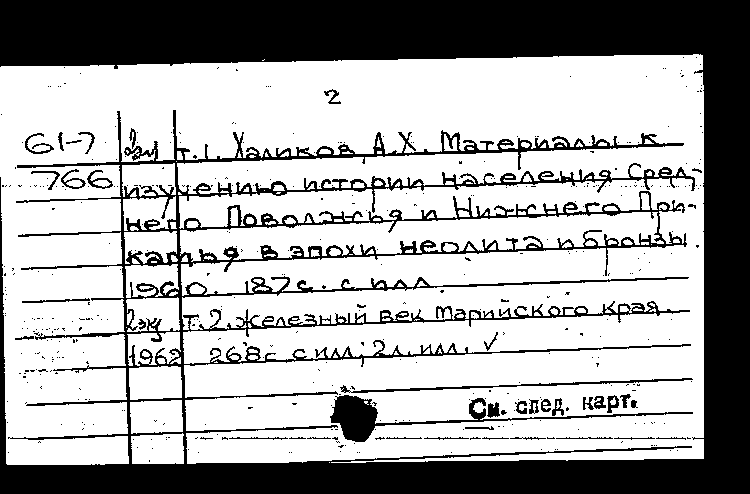 2
61-7 2эк т.1. Халиков, А.Х. Материалы к
766 изучению истории населения Сред-
него Поволжья и Нижнего При-
камья в эпохи неолита и бронзы.
1960. 187с. с илл.
2эк. т.2. Железный век Марийского края.
1962 268с с илл; 2л. илл. ✓
См. след. карт.